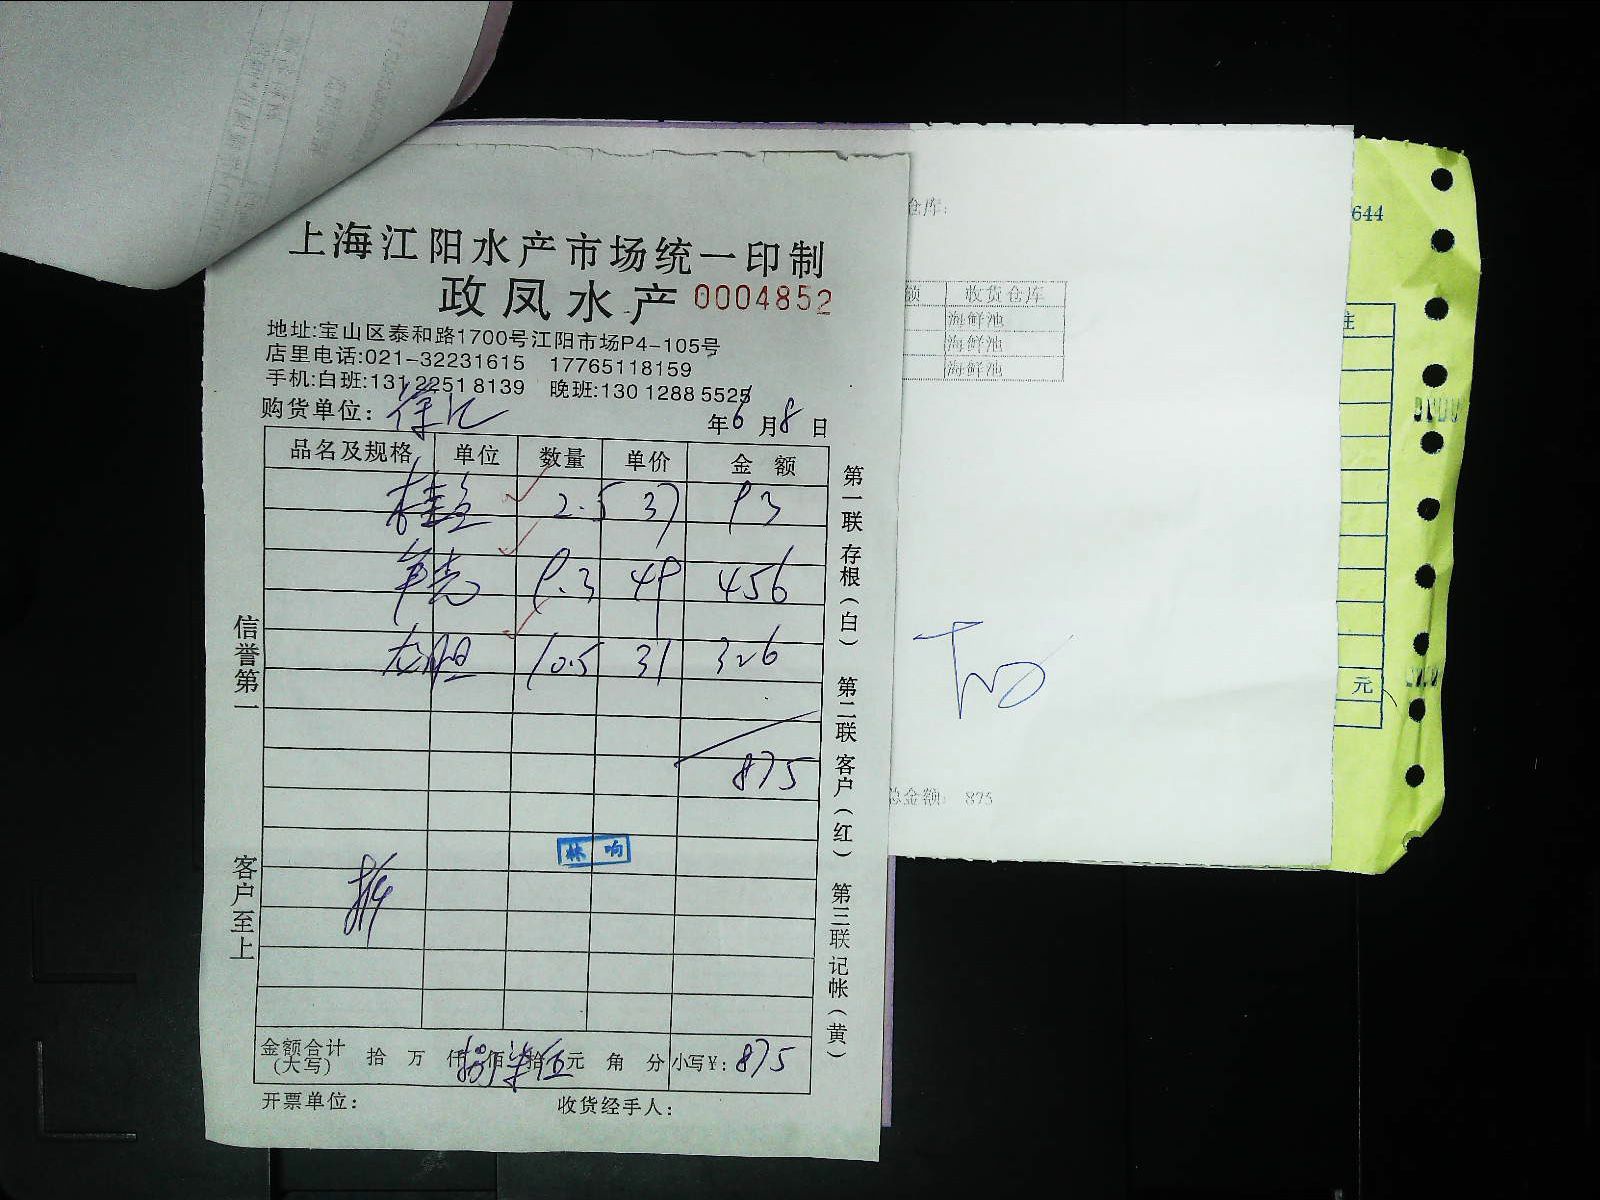 上海江阳水产市场统一印制
政凤水产 0004852
地址:宝山区泰和路1700号江阳市场P4-105号
店里电话:021-32231615 17765118159
手机:白班:131 2251 8139 晚班:130 1288 5525
购货单位: 徐汇 年6月8日
品名及规格 单位 数量 单价 金 额
桂鱼 2.5 37 93
9.3 49 456
龙胆 10.5 31 326
875
林 响
金额合计(大写) 拾 万 仟 捌佰柒拾伍元 角 分 小写¥: 875
开票单位: 收货经手人:
信誉第一
客户至上
第一联存根(白) 第二联客户(红) 第三联记帐(黄)
仓库:
额 收货仓库
海鲜池
海鲜池
海鲜池
总金额: 875
644
注
元